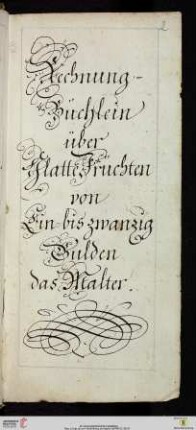 2
Rechnung-
Büchlein
über
Glatte Früchten
von
Ein bis zwanzig
Gulden
das Malter.